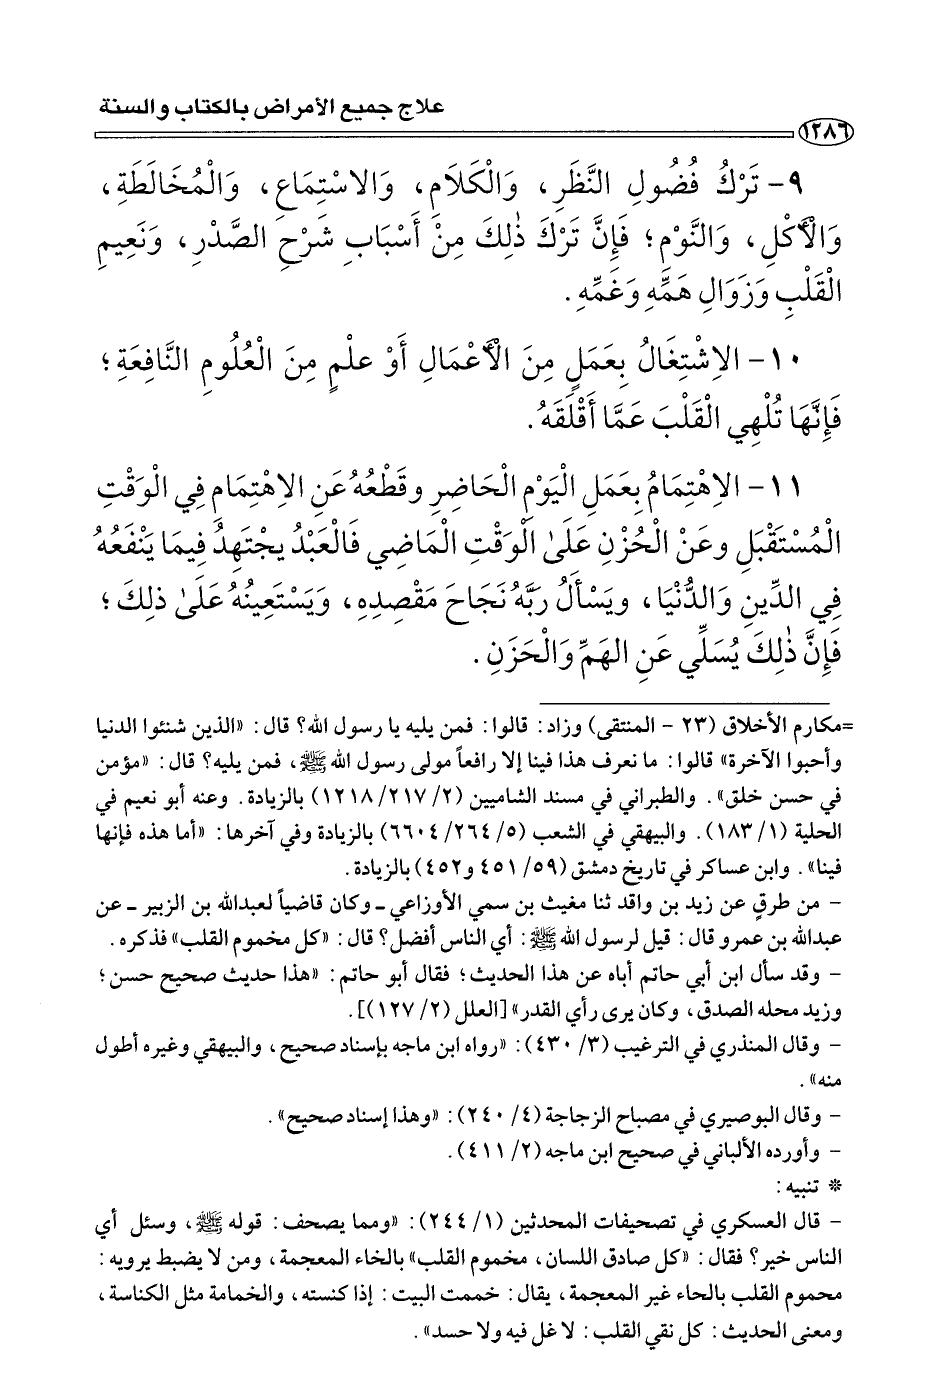 علاج جميع الأمراض بالكتاب والسنة
١٢٨٦
٩- تَرْكُ فُضُولِ النَّظَرِ، وَالْكَلَامِ، وَالاسْتِمَاعِ، وَالْمُخَالَطَةِ،
وَالْأَكْلِ، وَالنَّوْمِ؛ فَإِنَّ تَرْكَ ذٰلِكَ مِنْ أَسْبَابِ شَرْحِ الصَّدْرِ، وَنَعِيمِ
الْقَلْبِ وَزَوَالِ هَمِّهِ وَغَمِّهِ.
١٠- الاِشْتِغَالُ بِعَمَلٍ مِنَ الْأَعْمَالِ أَوْ عِلْمٍ مِنَ الْعُلُومِ النَّافِعَةِ؛
فَإِنَّهَا تُلْهِي الْقَلْبَ عَمَّا أَقْلَقَهُ.
١١- الاِهْتِمَامُ بِعَمَلِ الْيَوْمِ الْحَاضِرِ وقَطْعُهُ عَنِ الاِهْتِمَامِ فِي الْوَقْتِ
الْمُسْتَقْبَلِ وعَنْ الْحُزْنِ عَلَىٰ الْوَقْتِ الْمَاضِي فَالْعَبْدُ يجْتَهِدُ فِيمَا يَنْفَعُهُ
فِي الدِّينِ وَالدُّنْيَا، ويَسْأَلُ رَبَّهُ نَجَاحَ مَقْصِدِهِ، وَيَسْتَعِينُهُ عَلَىٰ ذلِكَ؛
فَإِنَّ ذٰلِكَ يُسَلِّي عَنِ الهَمِّ وَالْحَزَنِ.
=مكارم الأخلاق (٢٣ - المنتقى) وزاد: قالوا: فمن يليه يا رسول الله؟ قال: «الذين شنئوا الدنيا
وأحبوا الآخرة» قالوا: ما نعرف هذا فينا إلا رافعاً مولى رسول الله ﷺ، فمن يليه؟ قال: «مؤمن
في حسن خلق». والطبراني في مسند الشاميين (٢/ ٢١٧/ ١٢١٨) بالزيادة. وعنه أبو نعيم في
الحلية (١/ ١٨٣). والبيهقي في الشعب (٥/ ٢٦٤/ ٦٦٠٤) بالزيادة وفي آخرها: «أما هذه فإنها
فينا». وابن عساكر في تاريخ دمشق (٥٩/ ٤٥١ و٤٥٢) بالزيادة.
- من طرقٍ عن زيد بن واقد ثنا مغيث بن سمي الأوزاعي ـ وكان قاضياً لعبدالله بن الزبير ـ عن
عبدالله بن عمرو قال: قيل لرسول الله ﷺ: أي الناس أفضل؟ قال: «كل مخموم القلب» فذكره.
- وقد سأل ابن أبي حاتم أباه عن هذا الحديث؛ فقال أبو حاتم: «هذا حديث صحيح حسن؛
وزيد محله الصدق، وكان يرى رأي القدر» [العلل (٢/ ١٢٧)].
- وقال المنذري في الترغيب (٣/ ٤٣٠): «رواه ابن ماجه بإسناد صحيح، والبيهقي وغيره أطول
منه».
- وقال البوصيري في مصباح الزجاجة (٤/ ٢٤٠): «وهذا إسناد صحيح».
- وأورده الألباني في صحيح ابن ماجه (٢/ ٤١١).
* تنبيه:
- قال العسكري في تصحيفات المحدثين (١/ ٢٤٤): «ومما يصحف: قوله ﷺ، وسئل أي
الناس خير؟ فقال: «كل صادق اللسان، مخموم القلب» بالخاء المعجمة، ومن لا يضبط يرويه:
محموم القلب بالحاء غير المعجمة، يقال: خممت البيت: إذا كنسته، والخمامة مثل الكناسة،
ومعنى الحديث: كل نقي القلب: لا غل فيه ولا حسد».